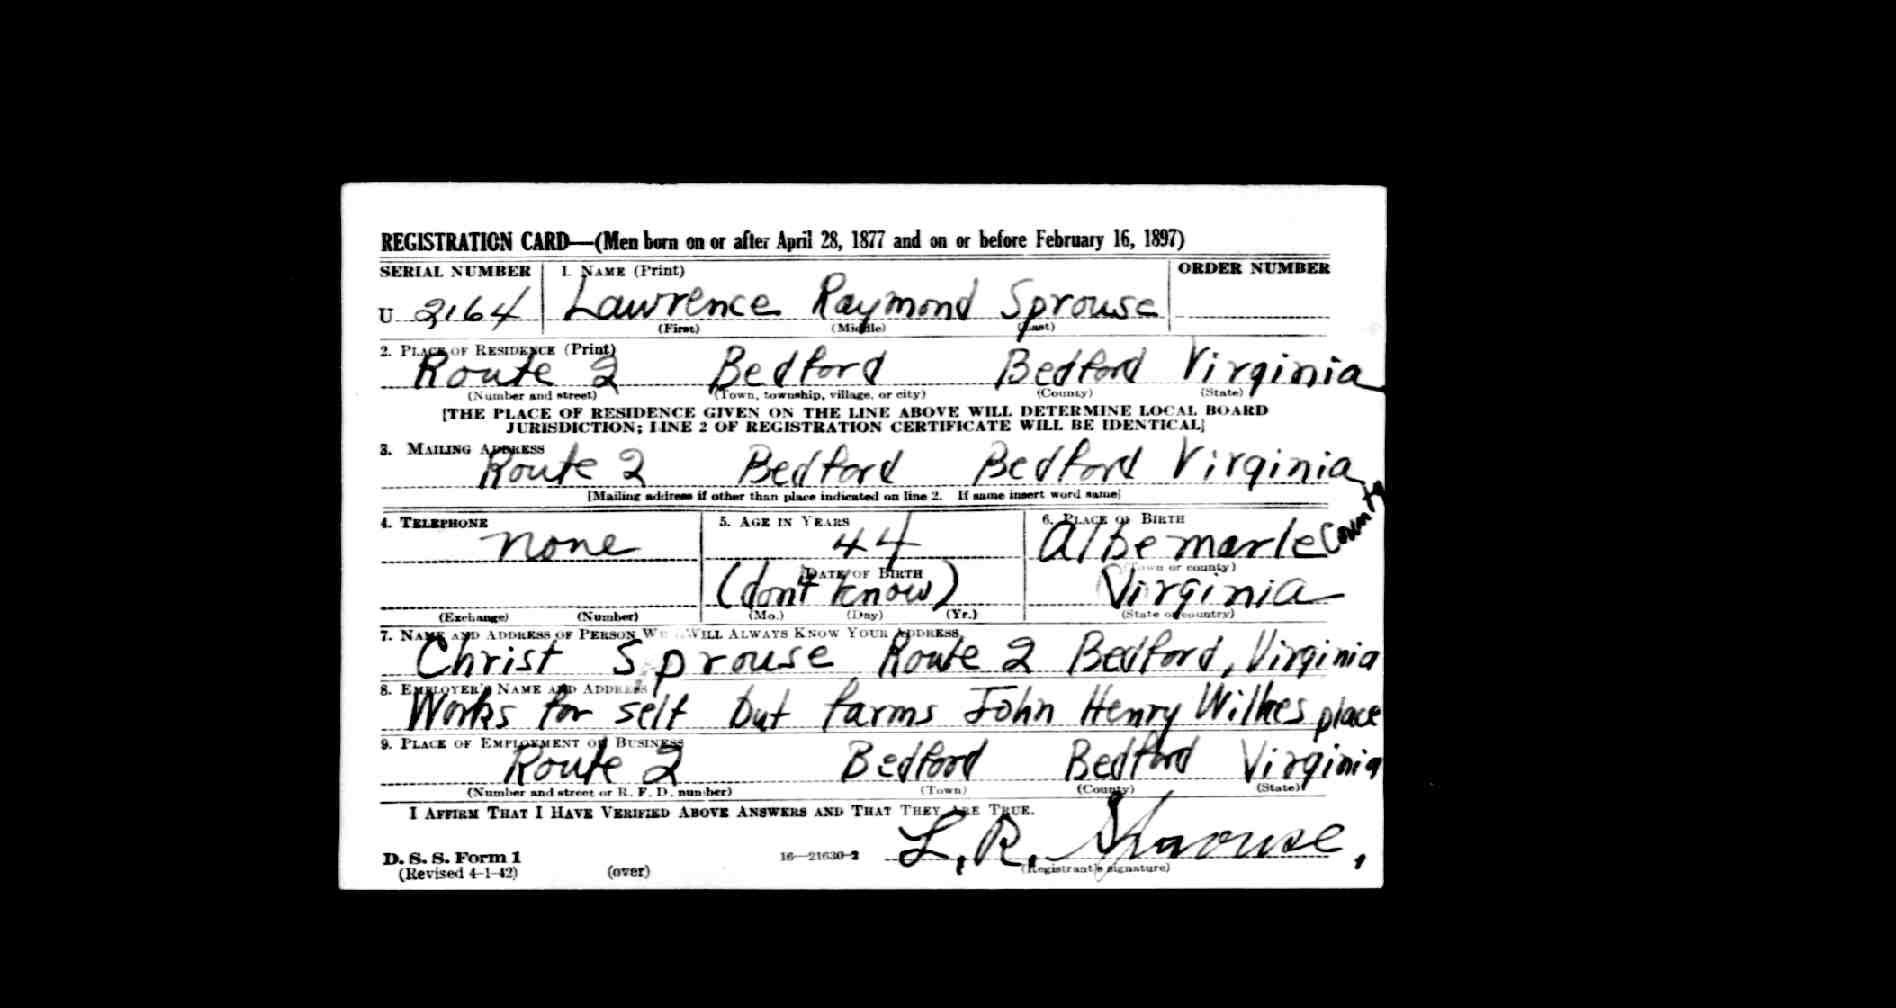 REGISTRATION CARD—(Men born on or after April 28, 1877 and on or before February 16, 1897)
SERIAL NUMBER 1. NAME (Print) ORDER NUMBER
U 2164 Lawrence Raymond Sprouse
(First) (Middle) (Last)
2. PLACE OF RESIDENCE (Print)
Route 2 Bedford Bedford Virginia
(Number and street) (Town, township, village, or city) (County) (State)
[THE PLACE OF RESIDENCE GIVEN ON THE LINE ABOVE WILL DETERMINE LOCAL BOARD
JURISDICTION; LINE 2 OF REGISTRATION CERTIFICATE WILL BE IDENTICAL]
3. MAILING ADDRESS
Route 2 Bedford Bedford Virginia
[Mailing address if other than place indicated on line 2. If same insert word same]
4. TELEPHONE 5. AGE IN YEARS 6. PLACE OF BIRTH
none 44 Albemarle County
DATE OF BIRTH (Town or county)
(don't know) Virginia
(Exchange) (Number) (Mo.) (Day) (Yr.) (State or country)
7. NAME AND ADDRESS OF PERSON WHO WILL ALWAYS KNOW YOUR ADDRESS
Christ Sprouse Route 2 Bedford, Virginia
8. EMPLOYER'S NAME AND ADDRESS
Works for self but farms John Henry Wilkes place
9. PLACE OF EMPLOYMENT OR BUSINESS
Route 2 Bedford Bedford Virginia
(Number and street or R. F. D. number) (Town) (County) (State)
I AFFIRM THAT I HAVE VERIFIED ABOVE ANSWERS AND THAT THEY ARE TRUE.
L. R. Sprouse.
D. S. S. Form 1 16—21630-2
(Revised 4-1-42) (over) (Registrant's signature)